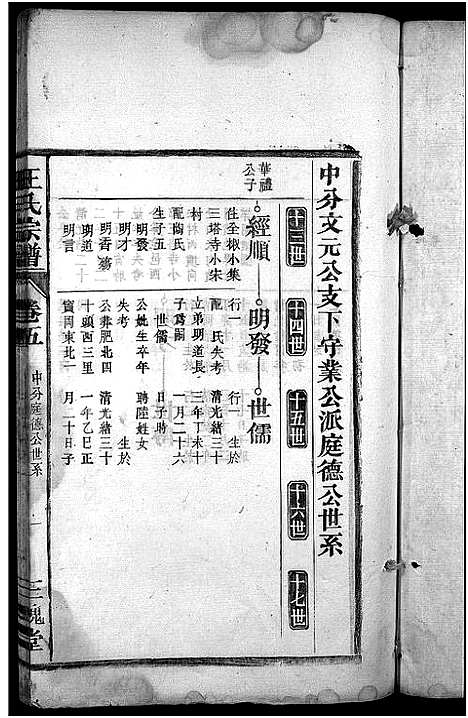 中分文元公支下守業公派庭德公世系
十三世
十四世
十五世
十六世
十七世
華禮
公子
經順
明發
世儒
住全椒小集
三塔寺小宋
村
配陶氏
生子五
明發
明才
明香
明道
明言
行一
配 氏失考
立弟明道長
子爲嗣
世儒
公妣生卒年
失考
公葬肥北四
十頭西三里
寶岡東北一
行一 生於
清光緒三十
三年丁未十
一月二十六
日子時
聘陸姓女
生於
清光緒三十
一年乙巳正
月二十日子
王氏宗譜
卷五
中分庭德公世系
一
三槐堂